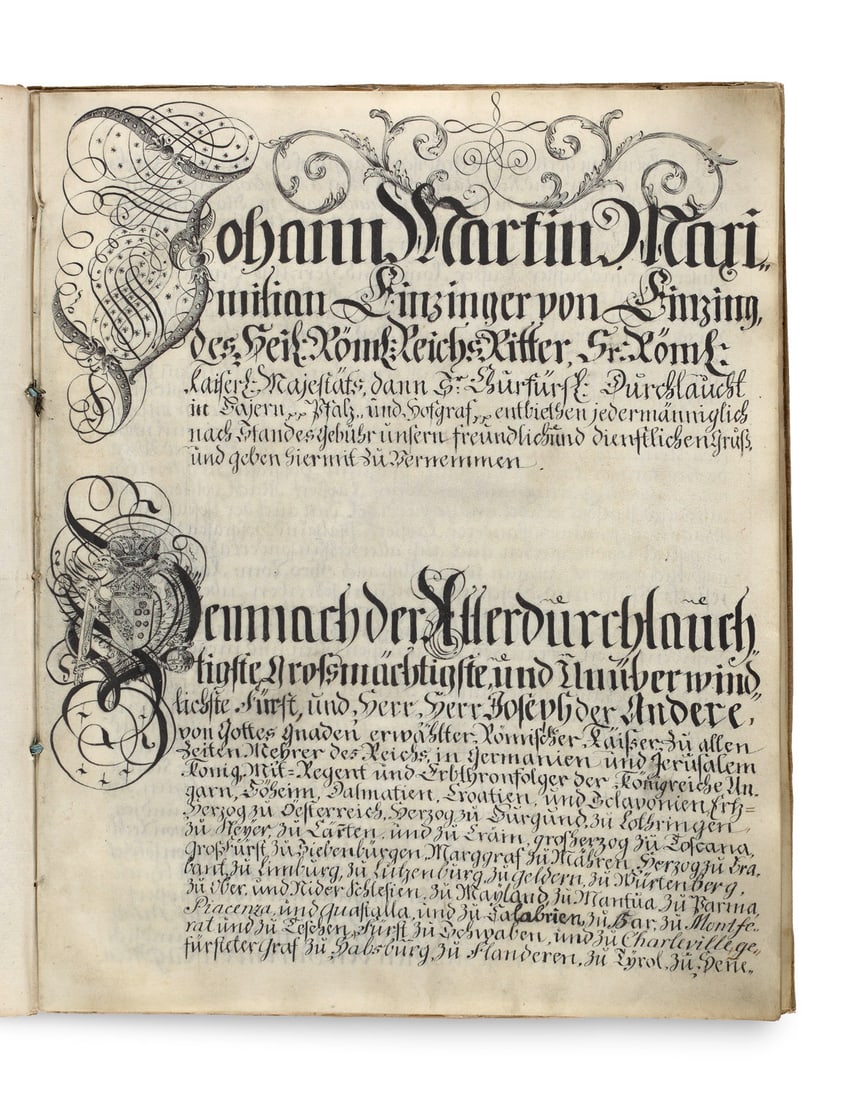 Johann Martin Maxi„
milian Einzinger von Einzing,
des Heil: Röml: Reichs Ritter, Sr: Röml:
Kaiserl: Majestäts, dann Sr. Churfürstl: Durchlaucht
in Bayern xx Pfalz„ und Hofgraf xx entbiethen jedermänniglich
nach Standes Gebühr unsern freundlich und dienstlichen Gruß,
und geben hiermit zu Vernemmen.
Demnach der Allerdurchlauch„
tigste, Großmächtigste, und Unüberwind„
lichste Fürst, und Herr, Herr Joseph der Andere,
von Gottes Gnaden erwählter Römischer Kaißer, zu allen
Zeiten Mehrer des Reichs, in Germanien und Jerusalem
König, Mit=Regent und Erbthronfolger der Königreiche Un-
garn, Böheim, Dalmatien, Croatien, und Sclavonien, Ertz=
Herzog zu Oesterreich, Herzog zu Burgund, zu Lothringen
zu Steyer, zu Cärten, und zu Crain, großherzog zu Toscana,
Großfürst zu Siebenbürgen, Marggraf zu Mähren, Herzog zu Bra-
bant, zu Limburg, zu Lutzenburg, zu geldern, zu Würtenberg,
zu Ober, und Nider Schlesien, zu Mayland, zu Mantua, zu Parma
Piacenza, und Quastalla, und zu Calabrien, zu Bar, zu Montfe-
rat und zu Teschen, Fürst zu Schwaben, und zu Charleville, ge-
fürsteter Graf zu Habsburg, zu Flanderen, zu Tyrol, zu Hene-